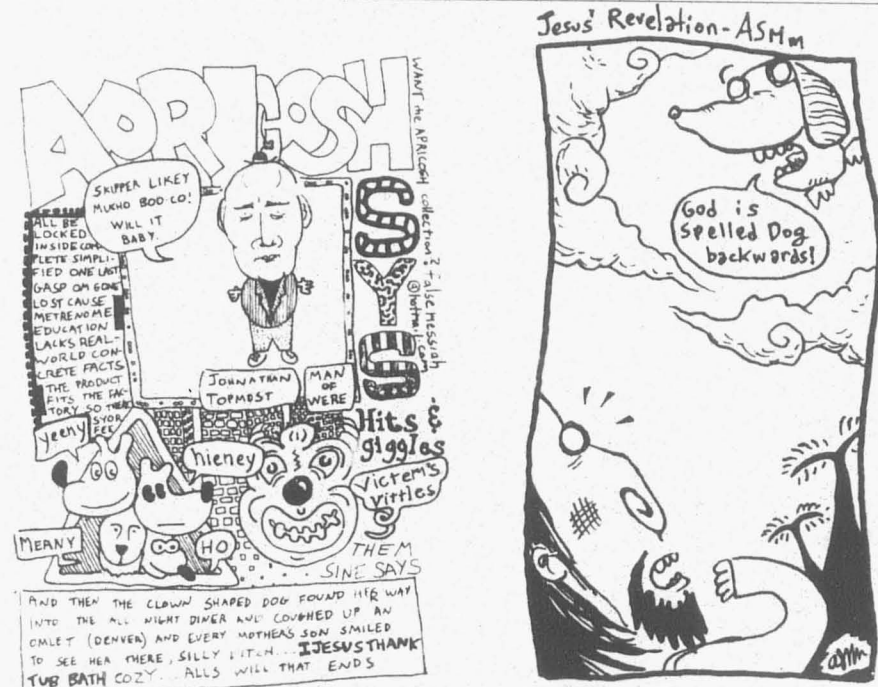 APRICOSH
WANT the APRICOSH collection? falsemessiah
@hotmail.com
SKIPPER LIKEY
MUCHO BOO-CO!
WILL IT
BABY.
ALL BE
LOCKED
INSIDE COM-
PLETE SIMPLI-
FIED ONE LAST
GASP OM GONE
LOST CAUSE
METRENOME
EDUCATION
LACKS REAL-
WORLD CON-
CRETE FACTS
THE PRODUCT
FITS THE FAC-
TORY SO
SYS
-&-
Hits
giggles
JOHNATHAN
TOPMOST
MAN
OF
WERE
yeeny
hieney
MEANY
HO
(1)
Victem's
Vittles
THEM
SINE SAYS
AND THEN THE CLOWN SHAPED DOG FOUND HER WAY
INTO THE ALL NIGHT DINER AND COUGHED UP AN
OMLET (DENVER) AND EVERY MOTHER'S SON SMILED
TO SEE HER THERE, SILLY BITCH.... I JESUS THANK
TUB BATH COZY... ALLS WILL THAT ENDS
Jesus' Revelation - ASMm
God is
Spelled Dog
backwards!